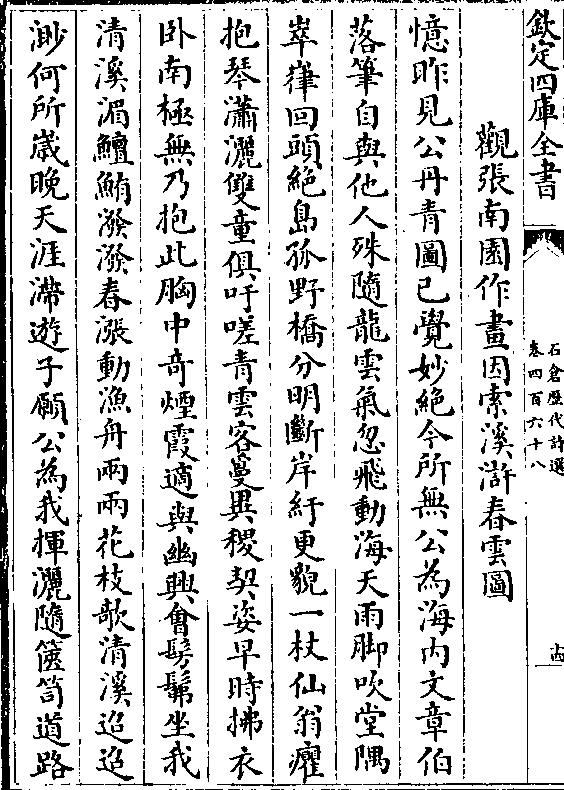 欽定四庫全書
石倉歷代詩選
卷四百六十八
觀張南園作畫因索溪滸春雲圖
憶昨見公丹青圖已覺妙絕今所無公為海内文章伯
落筆自與他人殊隨龍雲氣忽飛動海天雨脚吹堂隅
崒嵂回頭絶島孤野橋分明斷岸紆更貌一杖仙翁癯
抱琴瀟灑雙童俱吁嗟青雲客蔓異稷契姿早時拂衣
卧南極無乃抱此胸中竒煙霞適與幽興會髣髴坐我
清溪湄鱣鮪潑潑春漲動漁舟兩兩花枝欹清溪迢迢
渺何所歳晚天涯滯遊子願公為我揮灑隨篋笥道路